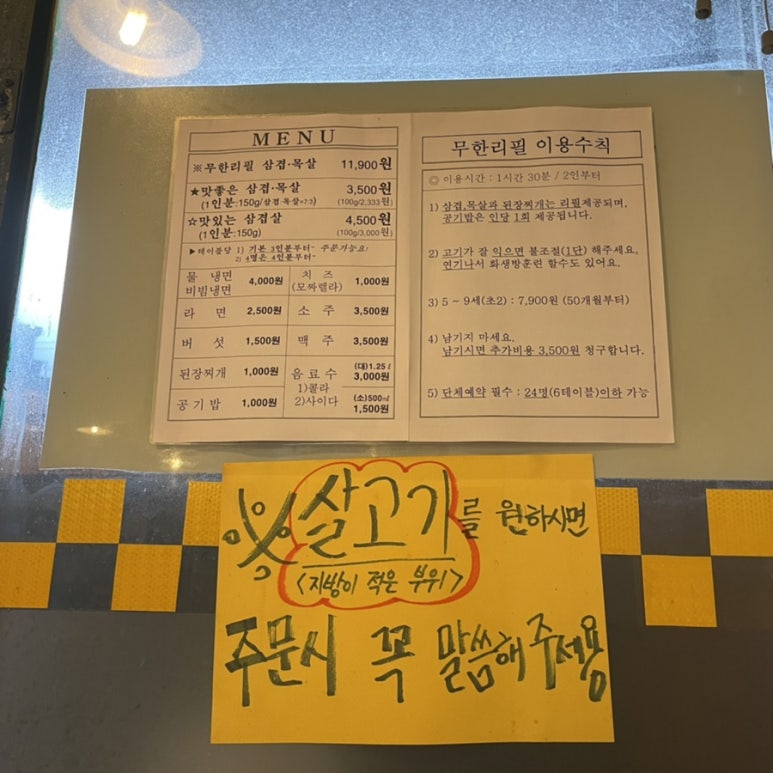 MENU
※무한리필 삼겹·목살 11,900원
★맛좋은 삼겹·목살 3,500원
(1인분:150g/삼겹·목살=7:3) (100g/2,333원)
☆맛있는 삼겹살 4,500원
(1인분:150g) (100g/3,000원)
▶테이블당 1) 기본 3인분부터~ 주문가능요!
2) 4명은 4인분부터~
물 냉면
비빔냉면 4,000원
치 즈
(모짜렐라) 1,000원
라 면 2,500원
소 주 3,500원
버 섯 1,500원
맥 주 3,500원
된장찌개 1,000원
음료수
1)콜라
2)사이다
(대)1.25ℓ
3,000원
(소)500㎖
1,500원
공기밥 1,000원
무한리필 이용수칙
◎ 이용시간 : 1시간 30분 / 2인부터
1) 삼겹,목살과 된장찌개는 리필제공되며,
공기밥은 인당 1회 제공됩니다.
2) 고기가 잘 익으면 불조절(1단) 해주세요.
연기나서 화생방훈련 할수도 있어요.
3) 5 ~ 9세(초2) : 7,900원 (50개월부터)
4) 남기지 마세요.
남기시면 추가비용 3,500원 청구합니다.
5) 단체예약 필수 : 24명(6테이블)이하 가능
※ 살고기를 원하시면
<지방이 적은 부위>
주문시 꼭 말씀해 주서용